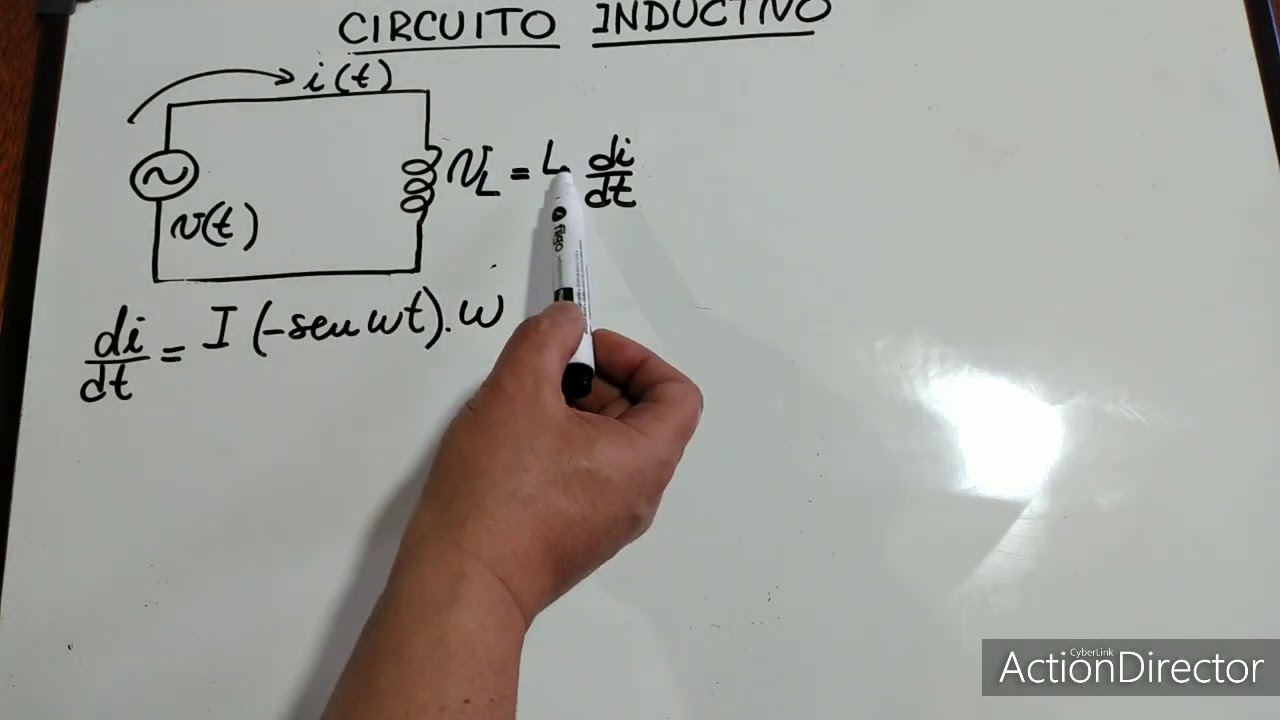 CIRCUITO INDUCTIVO
i(t)
v_L = L di/dt
v(t)
di/dt = I (-sen wt). w
filgo
CyberLink
ActionDirector